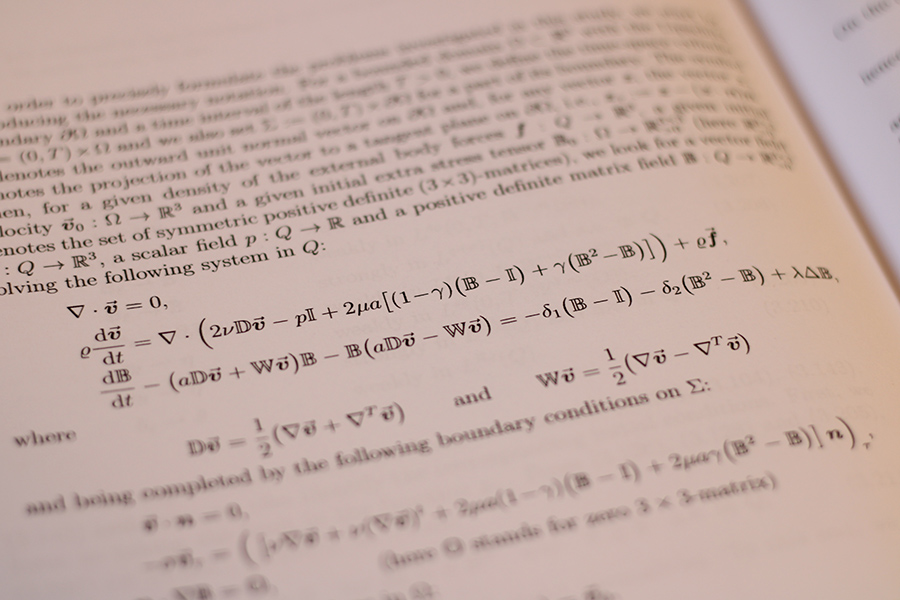 order to precisely formulate the problems investigated in this study,
ducing the necessary notation. For a bounded domain
ndary ∂Ω and a time interval of the length T > 0, we define the time-space
= (0,T) × Ω and we also set Σ := (0,T) × ∂Ω for a part of its boundary. The
denotes the outward unit normal vector on ∂Ω and, for any vector
notes the projection of the vector to a tangent plane on ∂Ω, i.e.,
en, for a given density of the external body forces f⃗ : Q → ℝ³, a given initial
locity v⃗₀ : Ω → ℝ³ and a given initial extra stress tensor 𝔹₀ : Ω → (here
enotes the set of symmetric positive definite (3×3)-matrices), we look for a vector field
: Q → ℝ³, a scalar field p : Q → ℝ and a positive definite matrix field 𝔹 : Q →
olving the following system in Q:
∇ · v⃗ = 0,
ϱ dv⃗/dt = ∇ · (2ν𝔻v⃗ − p𝕀 + 2μa[(1−γ)(𝔹 − 𝕀) + γ(𝔹² − 𝔹)]) + ϱf⃗,
d𝔹/dt − (a𝔻v⃗ + 𝕎v⃗)𝔹 − 𝔹(a𝔻v⃗ − 𝕎v⃗) = −δ₁(𝔹 − 𝕀) − δ₂(𝔹² − 𝔹) + λΔ𝔹,
where
𝔻v⃗ = 1/2(∇v⃗ + ∇ᵀv⃗) and 𝕎v⃗ = 1/2(∇v⃗ − ∇ᵀv⃗)
and being completed by the following boundary conditions on Σ:
v⃗ · n = 0,
+ 2μa(1−γ)(𝔹 − 𝕀) + 2μaγ(𝔹² − 𝔹)] n)τ,
(here 𝕆 stands for zero 3 × 3-matrix)
(in the
hence